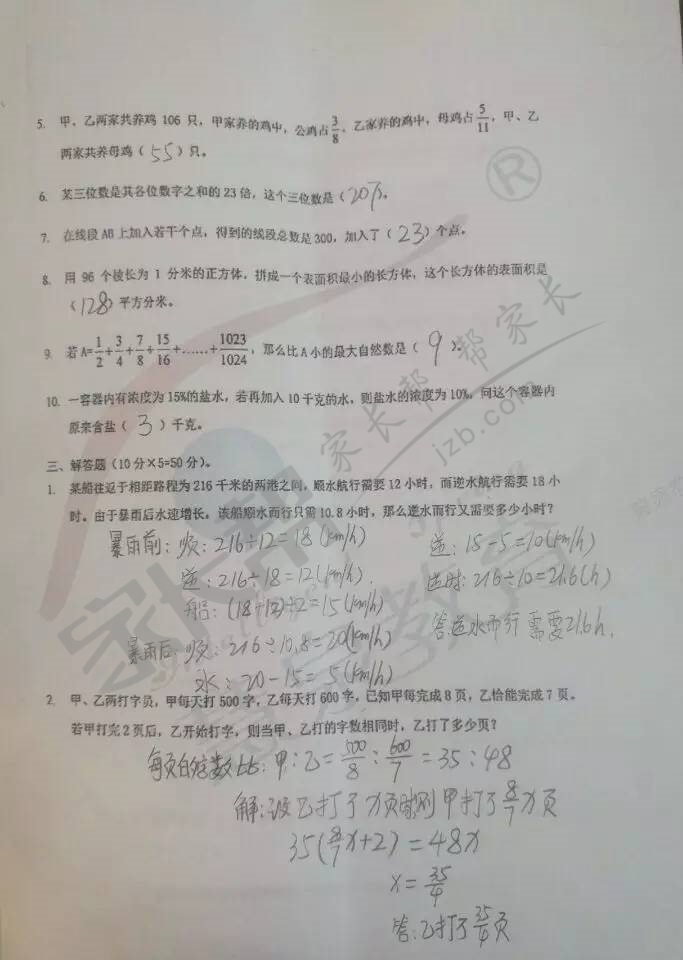 5. 甲、乙两家共养鸡 106 只，甲家养的鸡中，公鸡占3/8，乙家养的鸡中，母鸡占5/11，甲、乙
两家共养母鸡（ 55 ）只。
6. 某三位数是其各位数字之和的 23 倍，这个三位数是（ 207 ）。
7. 在线段 AB 上加入若干个点，得到的线段总数是 300，加入了（ 23 ）个点。
8. 用 96 个棱长为 1 分米的正方体，拼成一个表面积最小的长方体，这个长方体的表面积是
（128）平方分米。
9. 若 A=1/2+3/4+7/8+15/16+……+1023/1024，那么比 A 小的最大自然数是（ 9 ）。
10. 一容器内有浓度为 15%的盐水，若再加入 10 千克的水，则盐水的浓度为 10%，问这个容器内
原来含盐（ 3 ）千克。
三、解答题（10 分×5=50 分）。
1. 某船往返于相距路程为 216 千米的两港之间，顺水航行需要 12 小时，而逆水航行需要 18 小
时。由于暴雨后水速增长。该船顺水而行只需 10.8 小时，那么逆水而行又需要多少小时？
暴雨前：顺：216÷12=18(km/h)
逆：216÷18=12(km/h).
船：(18+12)÷2=15(km/h)
暴雨后：顺：216÷10.8=20(km/h)
水：20-15=5(km/h)
逆：15-5=10(km/h)
逆时：216÷10=21.6(h)
答逆水而行需要21.6h.
2. 甲、乙两打字员，甲每天打 500 字，乙每天打 600 字，已知甲每完成 8 页，乙恰能完成 7 页。
若甲打完 2 页后，乙开始打字，则当甲、乙打的字数相同时，乙打了多少页？
每页的字数比：甲：乙=500/8：600/7=35：48
解：设乙打了x页 则甲打了8/7x页
35(8/7x+2)=48x
x=35/4
答：乙打了35/4页
家长帮 帮家长
jzb.com
®